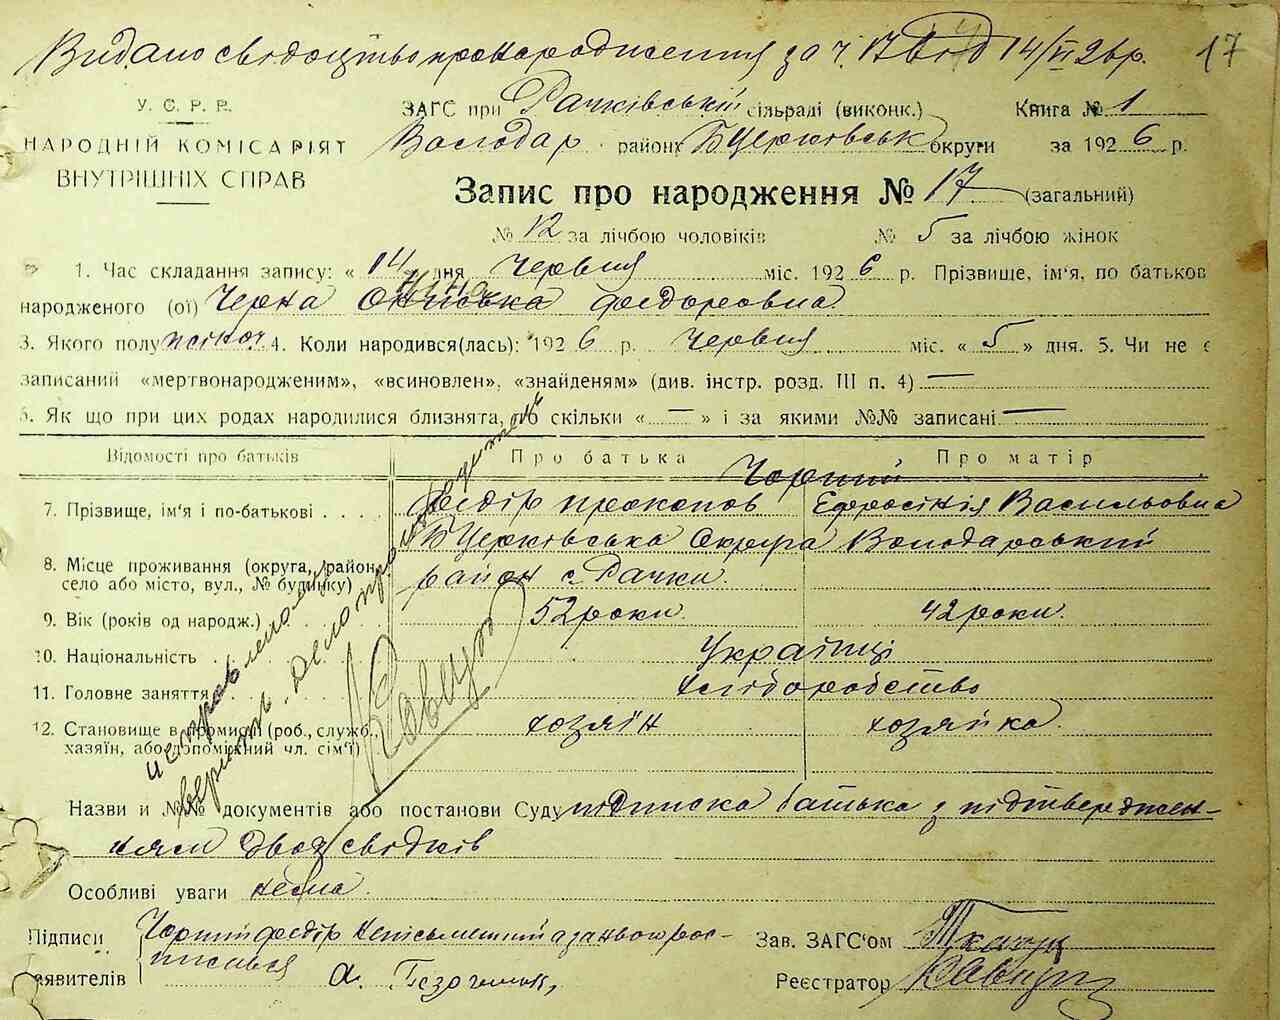 Видано свідоцтво про народження за ч. 17 від 14/VI 26 р. 17
У. С. Р. Р.
НАРОДНІЙ КОМІСАРІЯТ
ВНУТРІШНІХ СПРАВ
ЗАГС при Рачківській сільраді (виконк.) Книга № 1
Володар. району БЦерківськ округи за 1926 р.
Запис про народження № 17 (загальний)
№ 12 за лічбою чоловіків № 5 за лічбою жінок
1. Час складання запису: « 14 дня Червня міс. 1926 р. Прізвище, ім'я, по батьков
народженого (ої) Черна Федоровна
3. Якого полу жіноч. 4. Коли народився(лась): 1926 р. Червня міс. « 5 » дня. 5. Чи не є
записаний «мертвонародженим», «всиновлен», «знайденям» (див. інстр. розд. III п. 4) —
6. Як що при цих родах народилися близнята, то скільки « — » і за якими №№ записані —
Відомості про батьків Про батька Про матір
Чорний
7. Прізвище, ім'я і по-батькові . . . Федір Прокопов Ефросінія Васильовна
БЦерківська Округа Володарський
8. Місце проживання (округа, район, село або місто, вул., № будинку) район с. Рачки.
9. Вік (років од народж.) 52 роки. 42 роки.
10. Національність Українці
11. Головне заняття Хліборобство
12. Становище в промислі (роб., служб., хазяїн, або допоміжний чл. сім'ї) хозяїн хозяйка.
исправленому верить. Делопроизводитель
Назви и №№ документів або постанови Суду підписка батька з підтверджен-
ням двох свідків
Особливі уваги нема.
Підписи Чорний Федір неписьменний а за нього рос-
заявителів писався А.
Зав. ЗАГС'ом Ткачук
Реєстратор